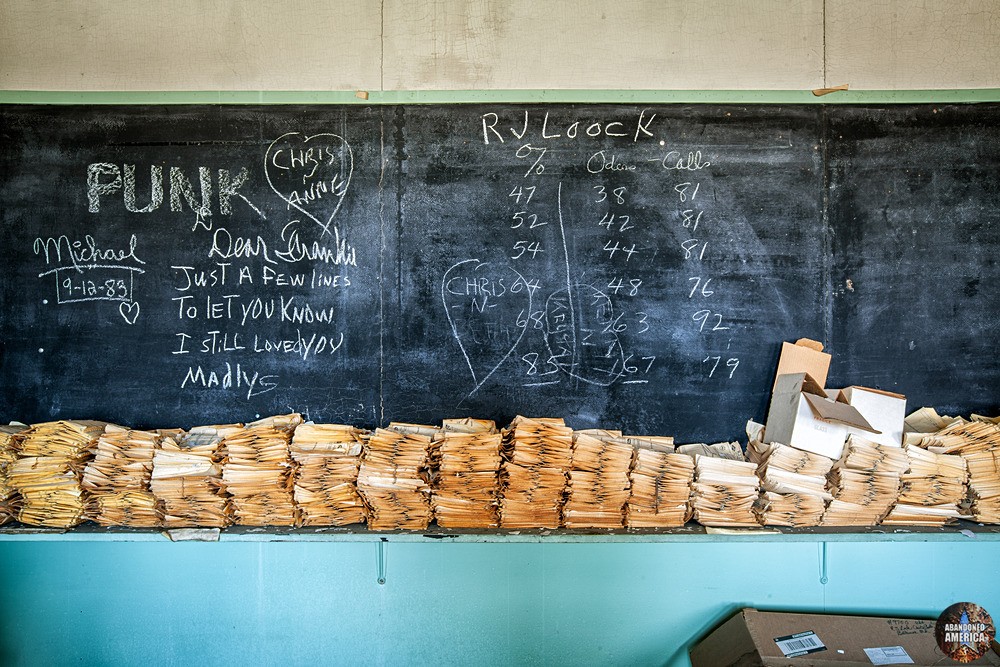 PUNK
CHRIS
N
ANNE
Michael
9-12-83
Dear Frankie
JUST A FEW LINES
TO LET YOU KNOW
I STILL LOVED YOU
MADLYS
R J LOOCK
% Oders - Calls
47 38 81
52 42 81
54 44 81
64 48 76
68 63 92
85 67 79
CHRIS
N-
ABANDONED
AMERICA